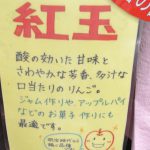 紅玉
酸の効いた甘味と
さわやかな芳香、多汁な
口当たりのりんご。
ジャム作りや アップルパイ
などのお菓子作りにも
最適です。
明治時代から